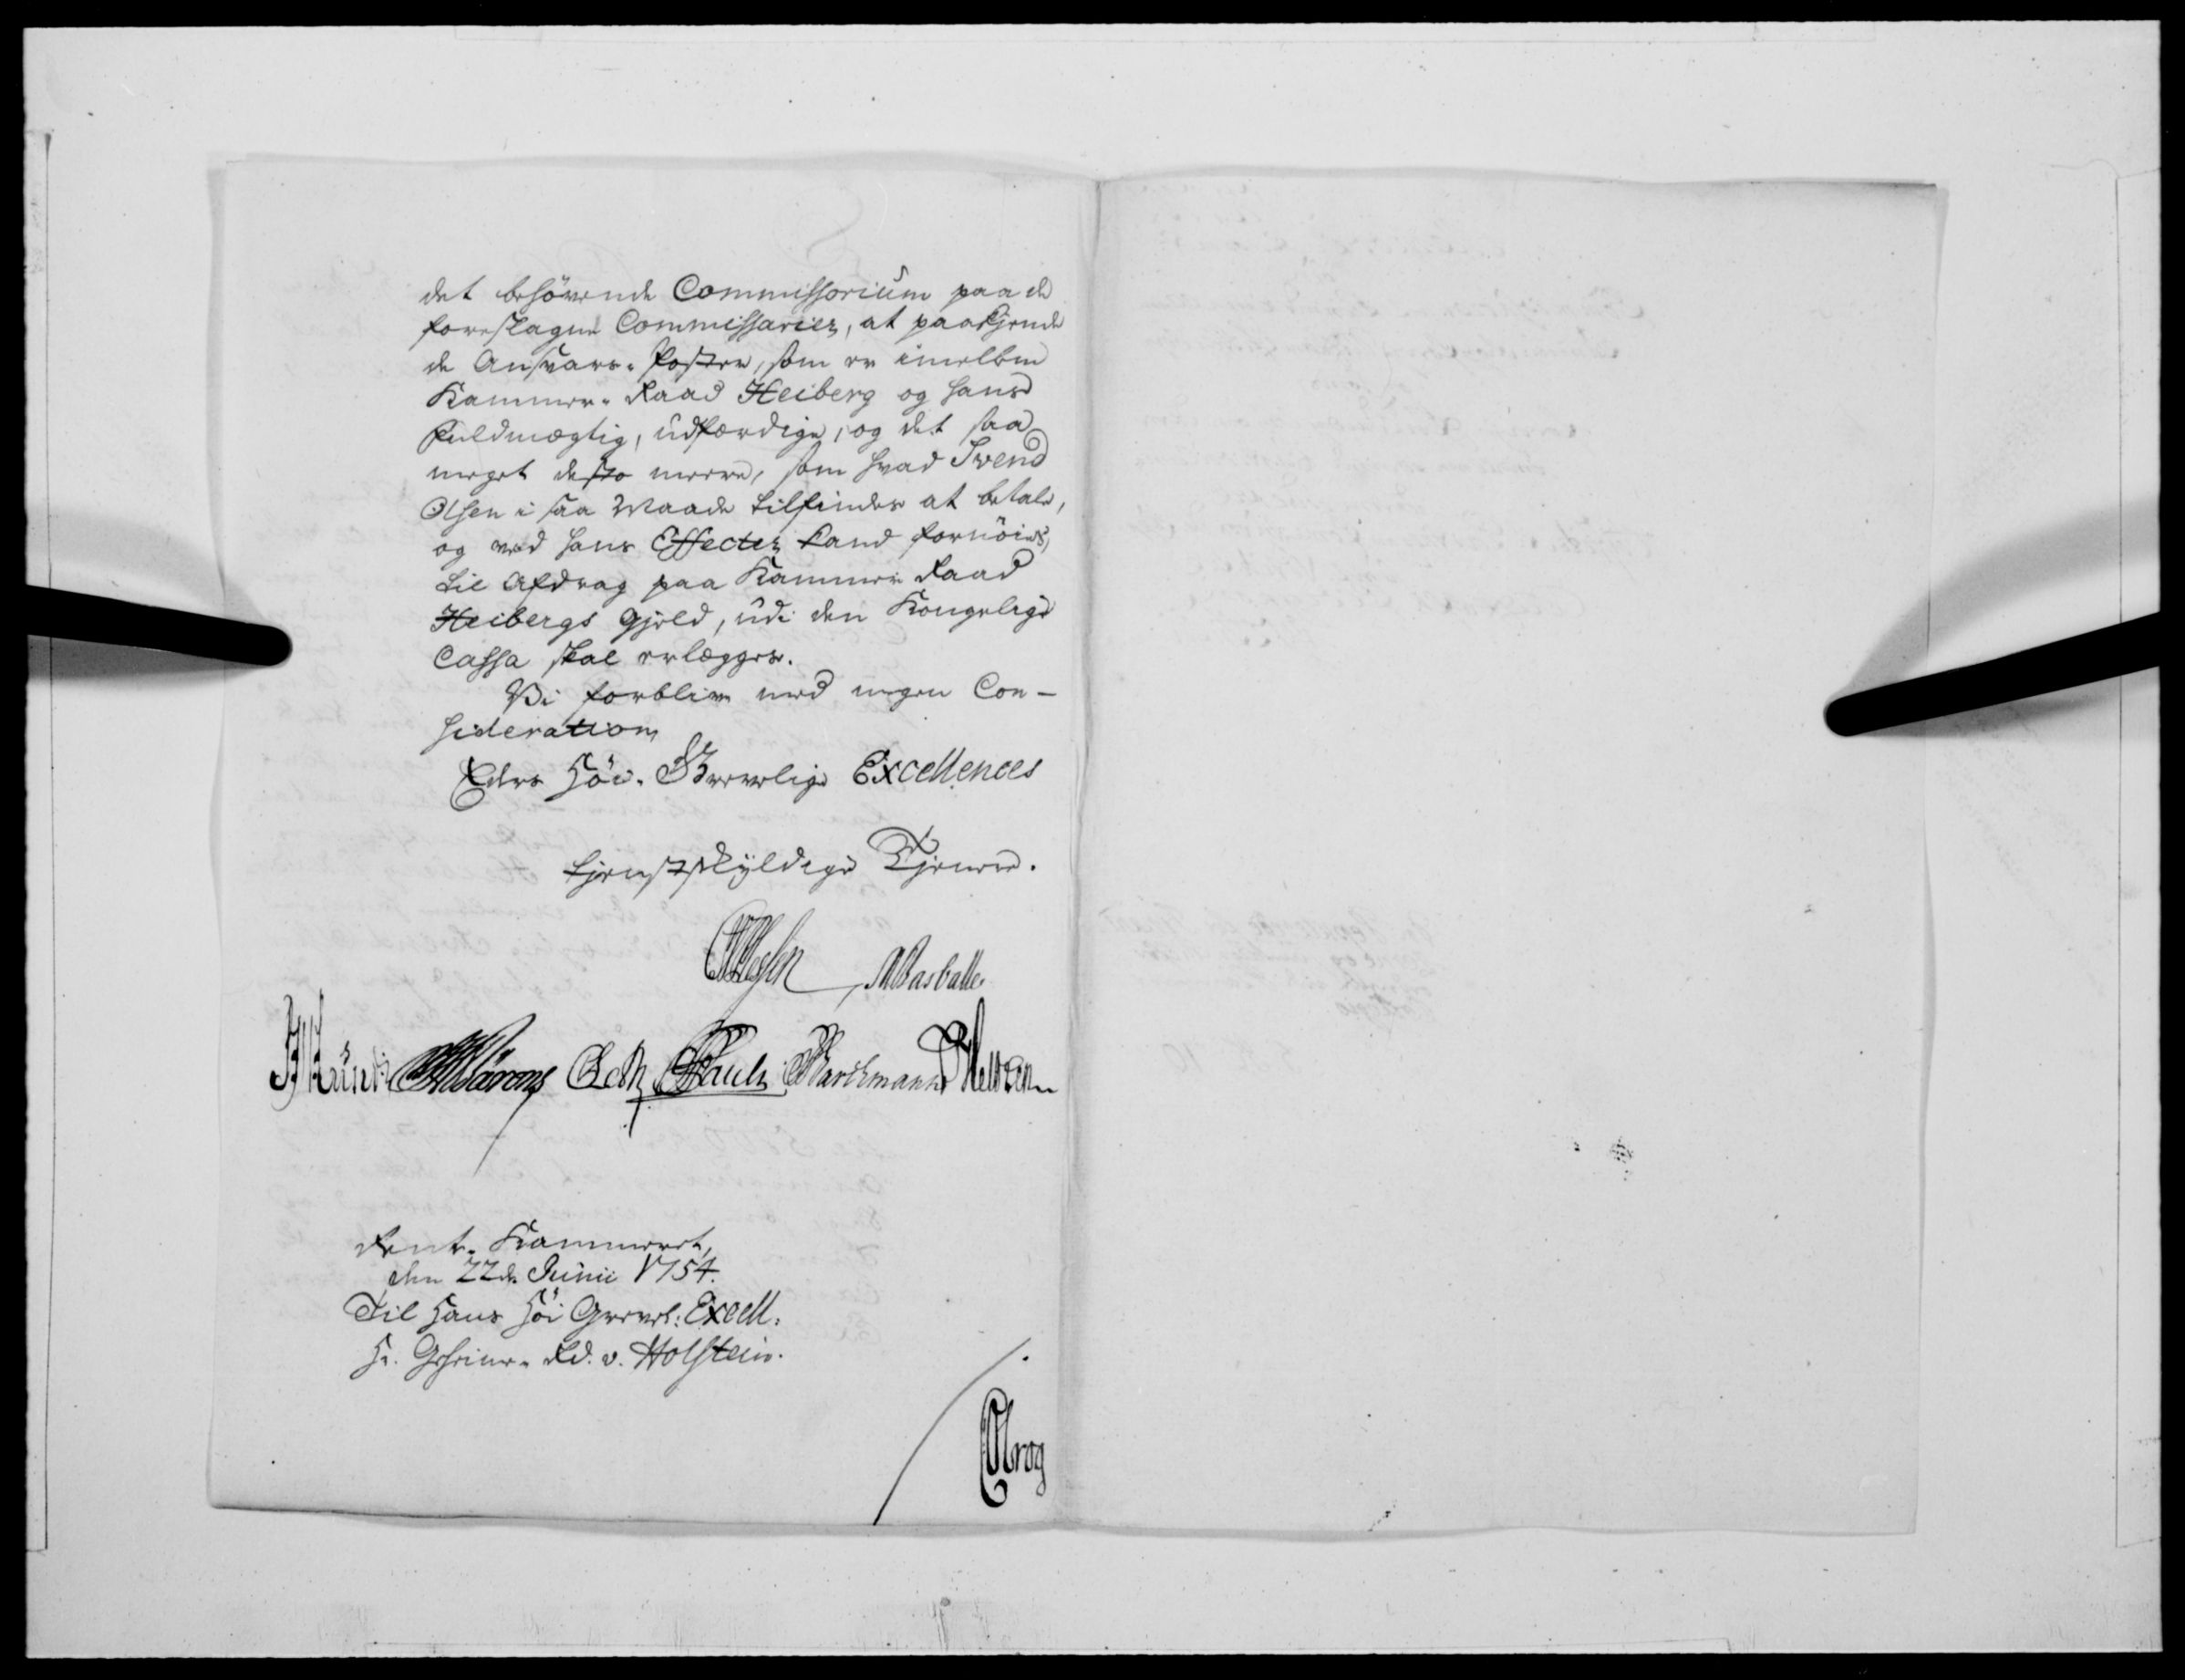 det behövende Commissorium paa de
foreslagne Commissarier, at paakjende
de Ansvars-Poster, som er imellem
Kammer-Raad Heiberg og hans
Fuldmægtig, udfærdige, og det saa
meget desto meere, som hvad Svend
Olsen i saa Maade tilfindes at betale,
og ved hans Effecter kand fornöies,
til Afdrag paa Kammer Raad
Heibergs Gjeld, udi den Kongelige
Cassa skal erlægges.
Vi forblive med megen Con-
sideration
Eders Höi-Grevelige Excellences
tjenstskyldige Tjenere.
Rasballe
Barchmann
Rente-Kammeret,
den 22de Junii 1754.
Til Hans Höi Grevel: Excell:
Hr. Geheime-Rd. v. Holstein.